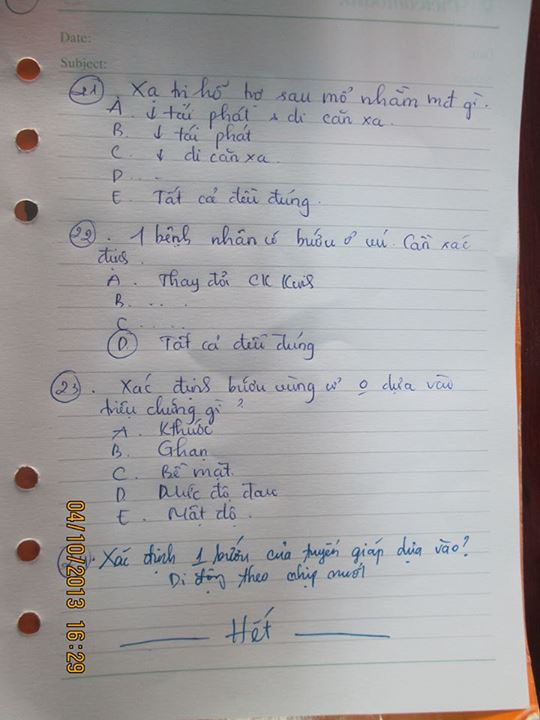 Date:
Subject:
21. Xạ trị hỗ trợ sau mổ nhằm mđ gì.
A. ↓ tái phát & di căn xa.
B. ↓ tái phát
C. ↓ di căn xa.
D. ...
E. Tất cả đều đúng.
22. 1 bệnh nhân có bướu ở vú. Cần xác
định.
A. Thay đổi CK Kwis
B. ....
C. ....
D. Tất cả đều đúng
23. Xác định bướu vùng cổ dựa vào
triệu chứng gì?
A. Kthước
B. Ghạn
C. Bề mặt.
D. Mức độ đau
E. Mật độ.
24. Xác định 1 bướu của tuyến giáp dựa vào?
Di động theo nhịp nuốt
Hết
04/10/2013 16:29